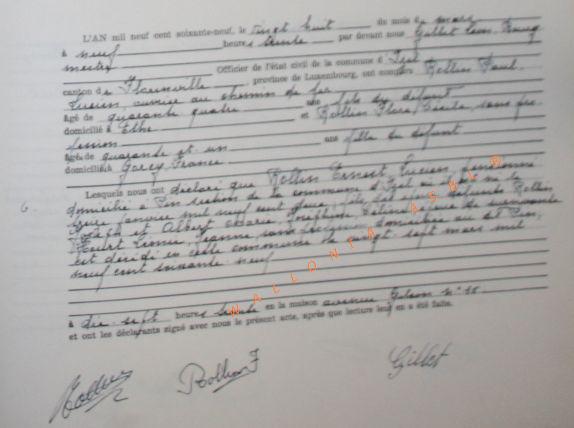 L'AN mil neuf cent soixante-neuf, le vingt huit du mois de mars
à neuf heures trente par devant nous Gillet Louis, Bourg
mestre Officier de l'état civil de la commune d' Izel
canton de Florenville, province de Luxembourg, ont comparu Rollin Paul
Lucien, ouvrier au chemin de fer
âgé de quarante quatre ans fils du défunt
domicilié à Ethe et Rollin Flore Cécile, sans pro
fession
âgée de quarante et un ans fille du défunt
domiciliée à Gorcy France
Lesquels nous ont déclaré que Rollin Ernest Lucien pensionné
domicilié à Pin section de la commune d'Izel où il est né le
janvier mil neuf cent fils des époux défunts Rollin
Joseph et Albert Marie Joséphine de
Léonie, Jeanne sans profession domiciliée au dit Pin,
est décédé en cette commune le vingt sept mars mil
neuf cent soixante neuf
à dix-sept heures trente en la maison avenue Gilson n°
et ont les déclarants signé avec nous le présent acte, après que lecture leur en a été faite.
Rollin F Gillet
WALLONIA ASBL